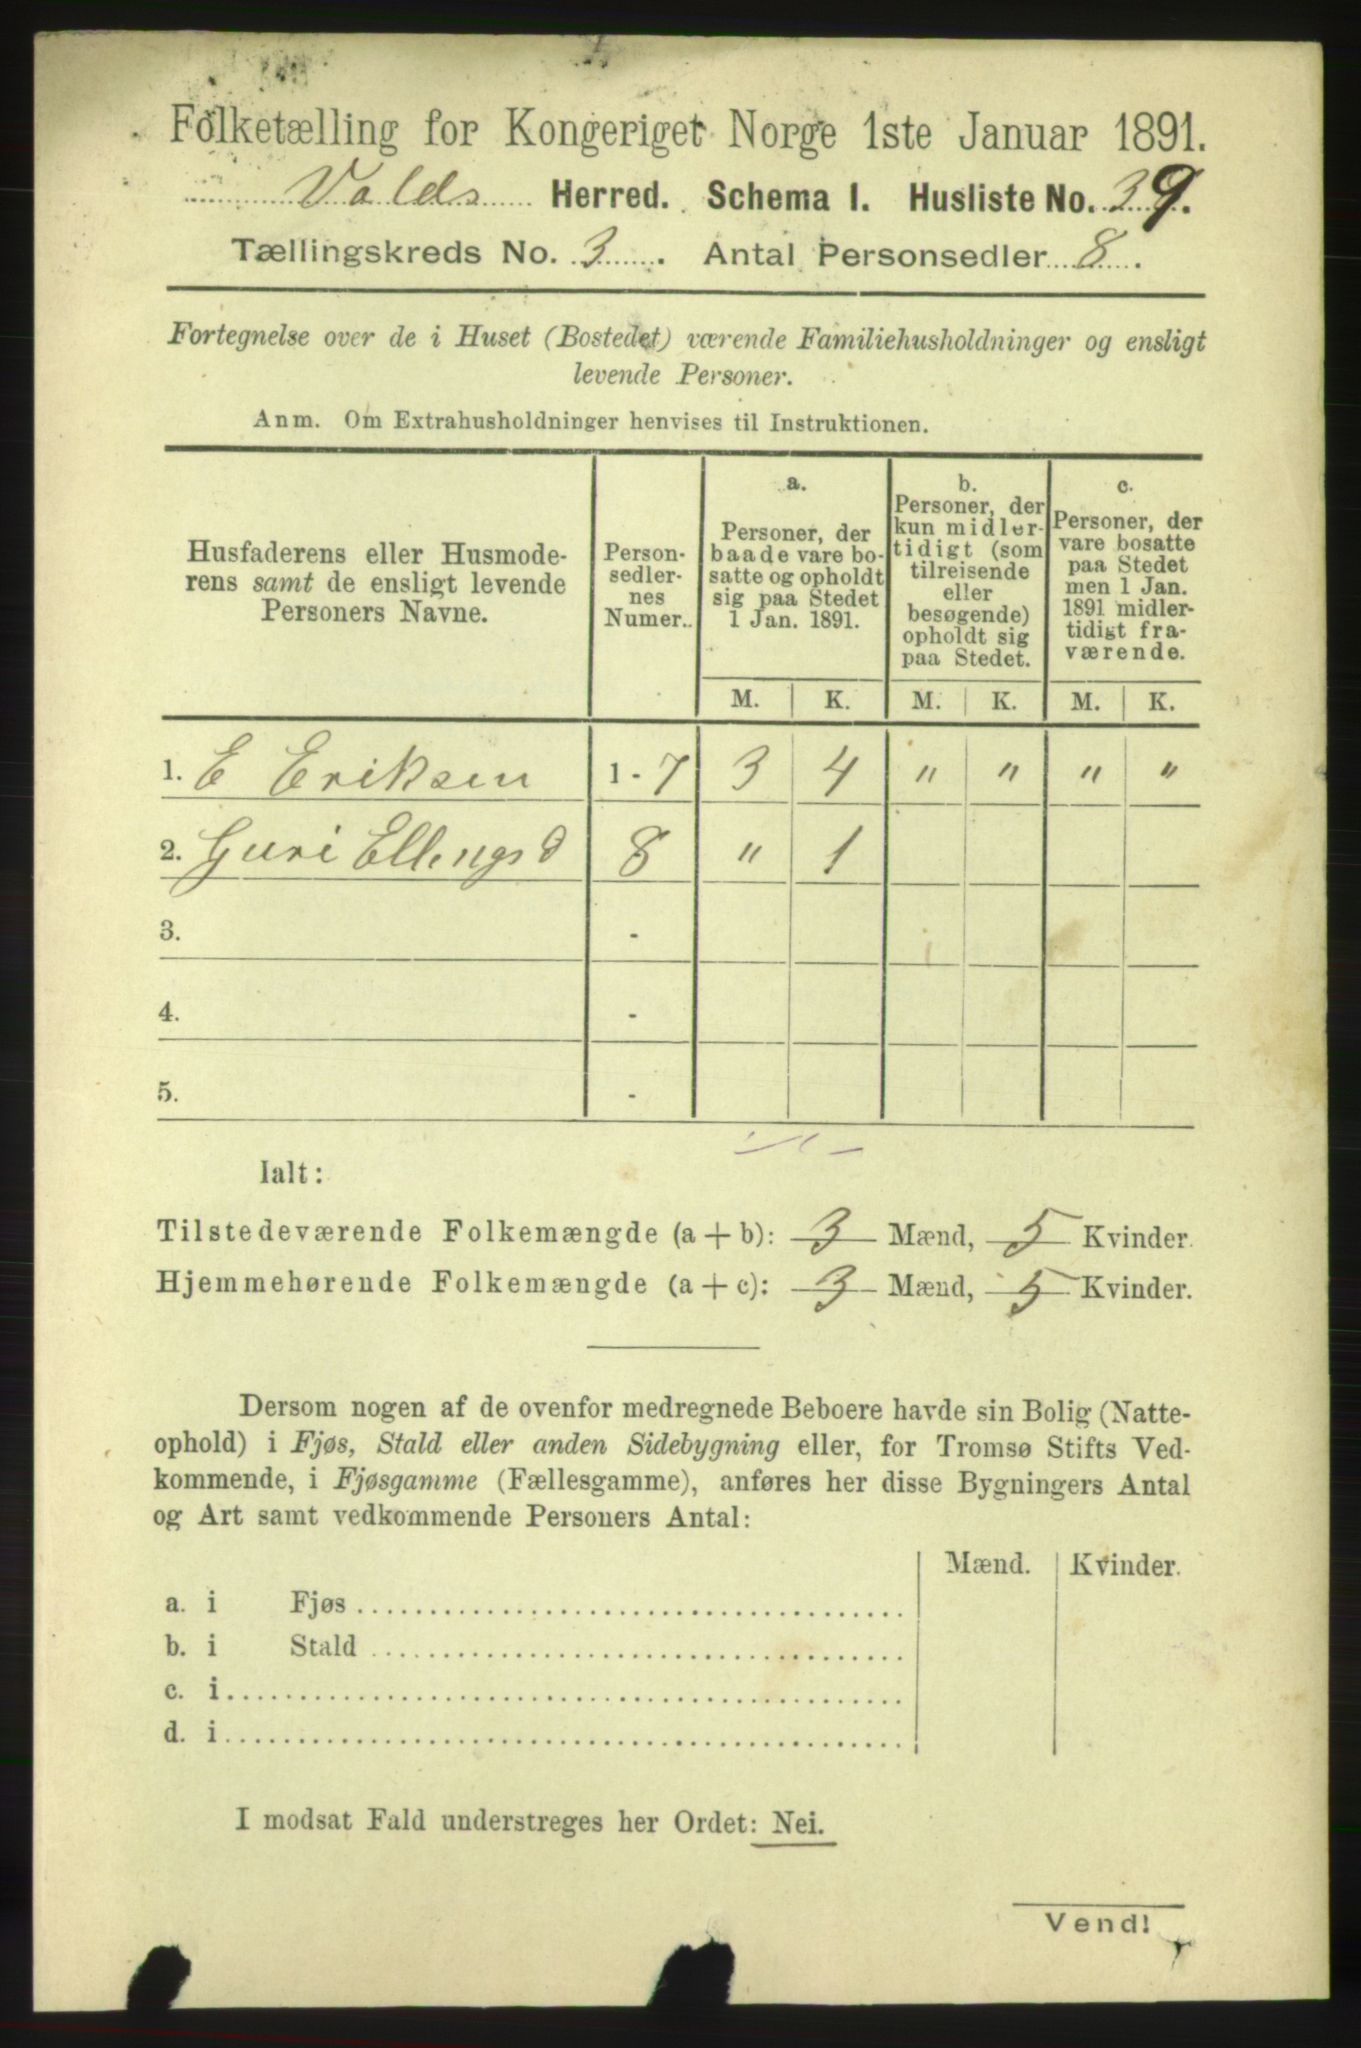 Folketælling for Kongeriget Norge 1ste Januar 1891.
Volds Herred. Schema I. Husliste No. 39.
Tællingskreds No. 3. Antal Personsedler 8.
Fortegnelse over de i Huset (Bostedet) værende Familiehusholdninger og ensligt
levende Personer.
Anm. Om Extrahusholdninger henvises til Instruktionen.
Husfaderens eller Husmode-
rens samt de ensligt levende
Personers Navne.
Person-
sedler-
nes
Numer.
a.
Personer, der
baade vare bo-
satte og opholdt
sig paa Stedet
1 Jan. 1891.
b.
Personer, der
kun midler-
tidigt (som
tilreisende
eller
besøgende)
opholdt sig
paa Stedet.
c.
Personer, der
vare bosatte
paa Stedet
men 1 Jan.
1891 midler-
tidigt fra-
værende.
M. K. M. K. M. K.
1. E Eriksen 1 - 7 3 4 " " " "
2. Guri Ellingsd 8 " 1
3. -
4. -
5. -
Ialt:
Tilstedeværende Folkemængde (a + b): 3 Mænd, 5 Kvinder.
Hjemmehørende Folkemængde (a + c): 3 Mænd, 5 Kvinder.
Dersom nogen af de ovenfor medregnede Beboere havde sin Bolig (Natte-
ophold) i Fjøs, Stald eller anden Sidebygning eller, for Tromsø Stifts Ved-
kommende, i Fjøsgamme (Fællesgamme), anføres her disse Bygningers Antal
og Art samt vedkommende Personers Antal:
Mænd. Kvinder.
a. i Fjøs
b. i Stald
c. i
d. i
I modsat Fald understreges her Ordet: Nei.
Vend!